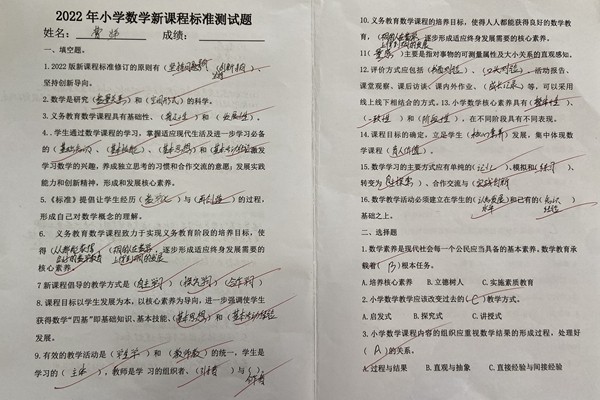 2022年小学数学新课程标准测试题
姓名： 成绩：
一、填空题。
1.2022版新课程标准修订的原则有（坚持问题导向）、（ ）、
坚持创新导向。
2.数学是研究（数量关系）和（空间形式）的科学。
3.义务教育数学课程具有基础性、（普及性）和（发展性）。
4.学生通过数学课程的学习，掌握适应现代生活及进一步学习必备
的（基础知识）、（基本技能）、（基本思想）和（基本活动经验）激发
学习数学的兴趣，养成独立思考的习惯和合作交流的意愿；发展实践
能力和创新精神，形成和发展核心素养。
5.《标准》提倡让学生经历（ ）与（再创造）的过程，
形成自己对数学概念的理解。
6. 义务教育数学课程致力于实现义务教育阶段的培养目标，使
得（ ），（ ），逐步形成适应终身发展需要的
核心素养。
7新课程倡导的教学方式是（自主学习）（探究学习）（合作学习）
8.课程目标以学生发展为本，以核心素养为导向，进一步强调使学生
获得数学“四基”即基础知识、基本技能、（基本思想）和（基本活动经验）
发展。
9.有效的教学活动是（学生学）和（教师教）的统一，学生是
学习的（主体），教师是学习的组织者、（引导者）与（ ）。
合作者
10.义务教育数学课程的培养目标，使得人人都能获得良好的数学教
育，（ ），逐步形成适应终身发展需要的核心素养。
11（量感）主要是指对事物的可测量属性及大小关系的直观感知。
12.评价方式应包括（书面测验）、（口头测验）、活动报告、
课堂观察、课后访谈、课内外作业、（成长记录）等，可以采用
线上线下相结合的方式。13.小学数学核心素养具有（整体性）、
（一致性）和（阶段性），在不同阶段具有不同表现。
14.课程目标的确定，立足学生（核心素养）发展，集中体现数
学课程（育人价值）。
15.数学学习的主要方式应有单纯的（记忆）、模拟和（练习），
转变为（ ）、合作交流与（实践创新）
16.数学教学活动必须建立在学生的（认知发展水平）和已有的（知识经验）
基础之上。
二、选择题
1.数学素养是现代社会每一个公民应当具备的基本素养。数学教育承
载着（B）根本任务。
A.培养核心素养 B.立德树人 C.实施素质教育
2.小学数学教学应该改变过去的（C）教学方式。
A.启发式 B.探究式 C.讲授式
3.小学数学课程内容的组织应重视数学结果的形成过程，处理好
（A）的关系。
A.过程与结果 B.直观与抽象 C.直接经验与间接经验